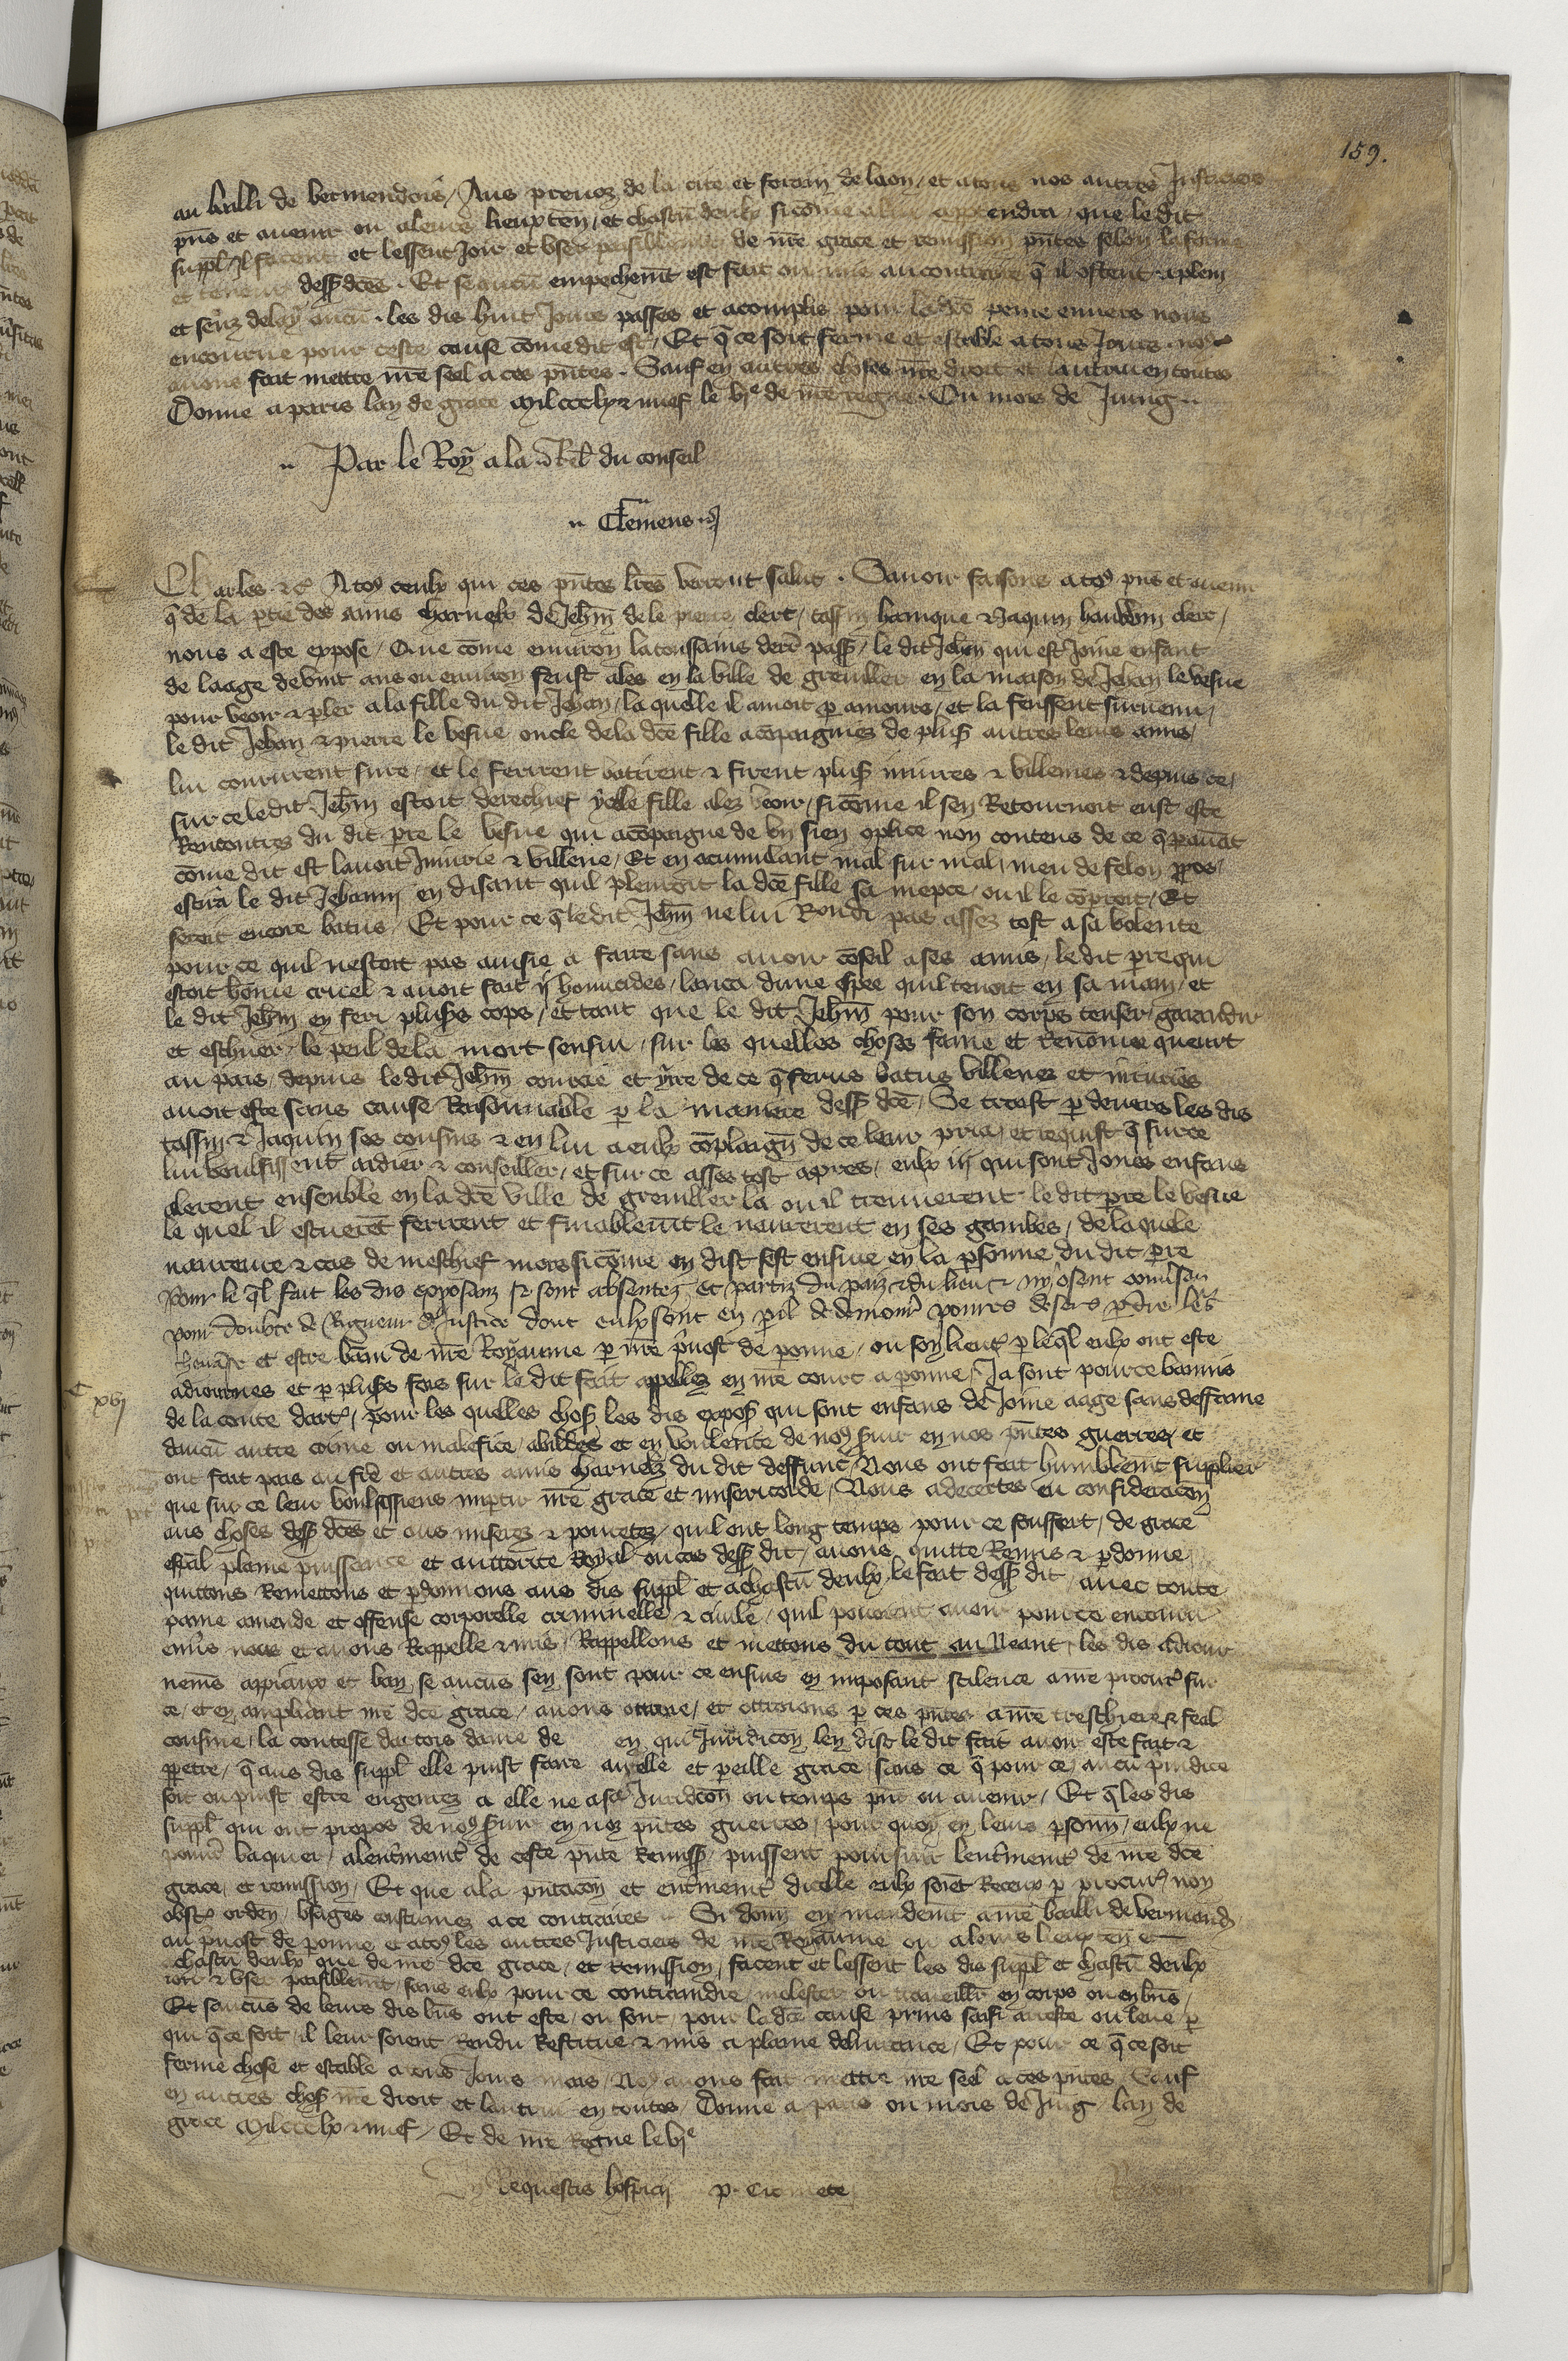 159.
au bailli de vermendois / Aus prevoz de la cite et forain de laon / et a tous nos autres Justiciers
pñs et avenir ou a leurs lieuxten̄ / et chascū deulx sicōme a lui appartendra / que le dit
suppl̄ Il facent et lessent Joir et user paisiblemēt de nr̄e grace et remission pñtes selon la forme
et teneur dess̄ dc̄es . Et se aucū empechemt̄ est fait ou mis au contraire q̄ il ostent a plein
et senz delay aucū . les dis huit Jours passes et acomplis pour la dc̄e peine envers nous
encourue pour ceste cause cōme dit est / Et q̄ ce soit ferme et estable a tous Jours nous
avons fait mettre nr̄e seel a ces pñtes . Sauf en autres choses nr̄e droit et lautrui en toutes
Donne a paris lan de grace mil ccclx & nuef le vjᵉ de nr̄e regne . Ou mois de Juing
Par le Roy a la Rel̄ du conseil
Clemens
Charles &c̄ A toꝰ ceulx qui ces pñtes lr̄es verront salut . Savoir faisons a toꝰ pñs et avenir
q̄ de la ptie des amis charnelx de Jeh̄m de le pierre clerc / tassin hanique & Jaquin haudoin clerc /
nous a este expose / Que cōme environ la toussains derr̄ pass̄ / le dit Jeh̄m qui est Joine enfant
de laage de vint ans ou environ feust ales en la ville de greviller en la maison de Jehan le vesue
pour veoir & pler a la fille du dit Jehan / la quelle il amoit p amours / et la feussent survenu /
le dit Jehan & pierre le vesue oncle de la dc̄e fille acōpaigniez de plus̄ autres leurs amis /
lui coururent sure / et le ferirent batirent & firent plus̄ iniures & villenies & depuis ce /
sur ce le dit Jeh̄m estoit derechief ycelle fille alez veoir / sicōme il sen Retournoit eust este
Rencontrez du dit pr̄e le vesue qui acōpaigne de un sien cōplice non contens de ce q̄ pavāt
cōme dit est lavoit Iniurie & villene / Et en acumulant mal sur mal / meu de felon ꝓpos /
escria le dit Jehanin en disant quil plenroit la dc̄e fille sa niepce / ou il le cōproit / Et
seroit encore batus / Et pour ce q̄ le dit Jeh̄m ne lui Rondi pas assez tost a sa volente
pour ce quil nestoit pas aisie a faire sans avoir cōseil a ses amis / le dit pr̄e qui
estoit hōme cruel & avoit fait ij homicides / lanca dune espee quil tenoit en sa main / et
le dit Jeh̄m en feri pluss̄ cops / et tant que le dit Jeh̄m pour son corps tenser garandir
et eschiver / le peril de la mort senfui / sur les quelles choses fame et renōmee queurt
au pais / depuis le dit Jeh̄m courcié et yre de ce q̄ ferus batus villenez et iniuries
avoit este sans cause Raisonnable p la maniere dess̄ dc̄e / Se trest p devers les dis
tassin & Jaquin ses cousins & en lui a eulx cōplaign̄ de ce leur pria / et requist q̄ sur ce
lui voulsissent aidier & conseiller / et sur ce asses tost apres / eulx iij qui sont Jones enfans
alerent ensemble en la dc̄e ville de greviller la ou il trenverent le dit pr̄e le vesue
le quel il escrierēt ferirent et finablemt̄ le navrerent en ses gambes / de la quele
navreure & cas de meschief mors sicōme en dist sest ensuie en la psonne du dit pr̄e
Pour le q̄l fait les dis exposanz se sont absentez / et partiz du paiz & du lieu & ny osent converser
pour doubte de Rigueur de Justice dont eulx sont en pil de demourer povres deserz pdre leur
chevāce et estre bāni de nr̄e Royaume p nr̄e p̄vost de peronne / ou son lieut̄ p le q̄l eulx ont este
adiournes et p pluss̄ fois sur le dit fait appellez en nr̄e court a peronne / Ja sont pour ce bannis
xvij
de la conte dartꝰ / pour les quelles chos̄ les dis expos̄ qui sont enfans de Joine aage sans deffame
daucū autre crime ou malefice / abilles et en voulente de noꝰ s̄vir en nos pñtes guerres / et
ont fait pais au fr̄e et autres amis charnelz du dit deffunct / Nous ont fait humblemt̄ supplier
que sur ce leur voulsissiens imptir nr̄e grace et misericorde / Nous adecertes en consideracōn
aus choses dess̄ dc̄es et aus miseres & povretez / quil ont long temps pour ce souffert / de grace
esp̄al plaine puissance et auttorite Royal ou cas dess̄ dit / avons quitte Remis & pdonne /
quittons Remettons et pdonnons aus dis suppl̄ et a chascū deulx le fait dess̄ dit avec toute
paine amende et offense corporelle criminelle & civile / quil pouroient avoir pour ce encouru
env̄s nous et avons Rappelle & mis / Rappellons et mettons du tout au Neant / les dis adiour
nemēs appiaux et ban / se aucūs sen sont pour ce ensuis en imposant scilence a nr̄e procurꝰ sur
ce / et en ampliant nr̄e dc̄e grace / avons ottroie / et ottroions p ces pñtes a nr̄e treschiere & feal
cousine / la contesse dartois dame de en qui Juridicōn len dist le dit fait avoir este fait &
ppetre / q̄ aus dis suppl̄ elle puist faire autelle et pareille grace / sans ce q̄ pour ce / aucū p̄iudice
soit ou puist estre engenrez a elle ne a sa Juridicōn ou temps pñt ou avenir / Et q̄ les dis
suppl̄ qui ont propos de noꝰ s̄vir en noz pñtes guerres / pour quoy en leurs psonn̄ / eulx ne
pouroiēt vaquer / a lent̄inement de ceste pñte Remiss̄ / puissent poursuir lent̄inement de nr̄e dc̄e
grace / et remission / Et que a la pñtacōn et ent̄inement dicelle eulx soiēt Receux p procurꝰ non
obstꝰ orden̄ / usages coustumes a ce contraires Si donn̄ en mandemt̄ a nr̄e bailli de vermendꝰ
au p̄vost de peronne et a toꝰ les autres Justiciers de nr̄e Royaume ou a leurs lieuxten̄ et
chascū deulx que de nr̄e dc̄e grace / et Remission / facent et lessent les dis suppl̄ et chascū deulx
joir & user paisiblemt̄ / sans eulx pour ce contraindre / molester ou traveillr̄ en corps ou en biēs /
Et saucūs de leurs dis biēs ont este / ou sont / pour la dc̄e cause prins saisi arreste ou leve p
qui q̄ ce soit / il leur soient Rendu Restitue & mis a plaine delivrance / Et pour ce q̄ ce soit
ferme chose et estable a tous Jours mais / Noꝰ avons fait mettre nr̄e seel a ces pñtes / Sauf
en autres chos̄ nr̄e droit et lautrui en toutes / Donne a paris ou mois de Juig / lan de
grace mil ccclx & nuef / Et de nr̄e Regne le vjᵉ
In Requestis hospicii